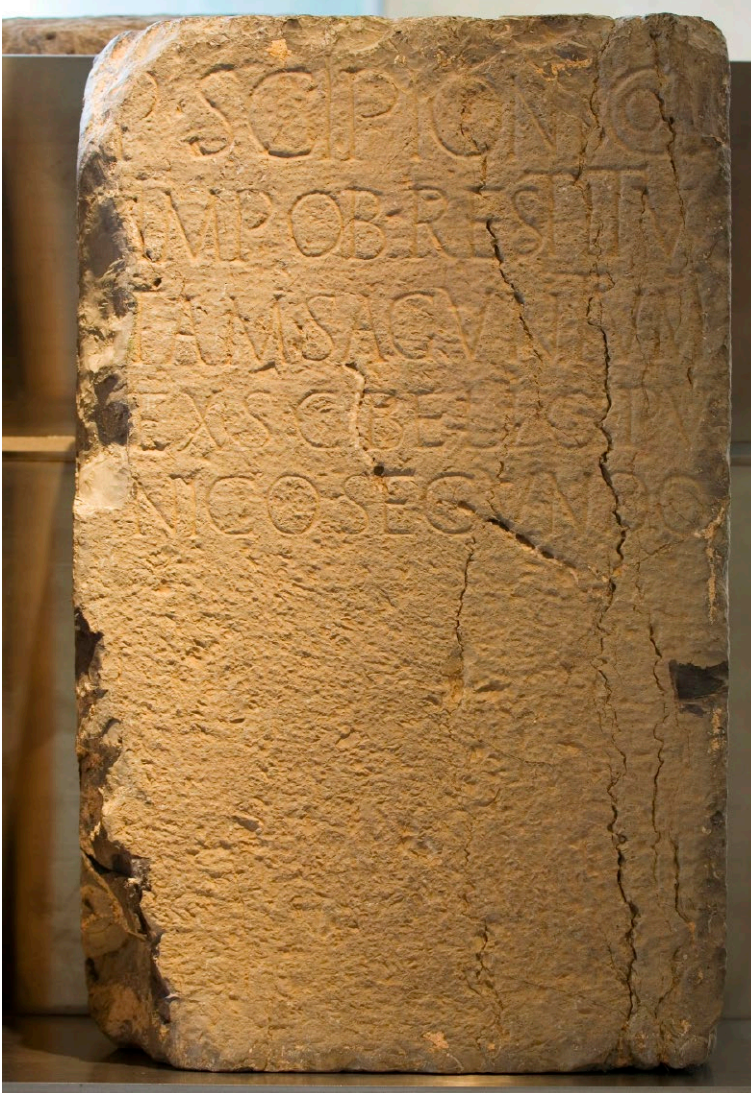 P·SCIPIONI·COS
IMP·OB·RESTITV
TAM·SAGVNTVM
EX·S·C·BELLO·PV
NICO·SECVNDO